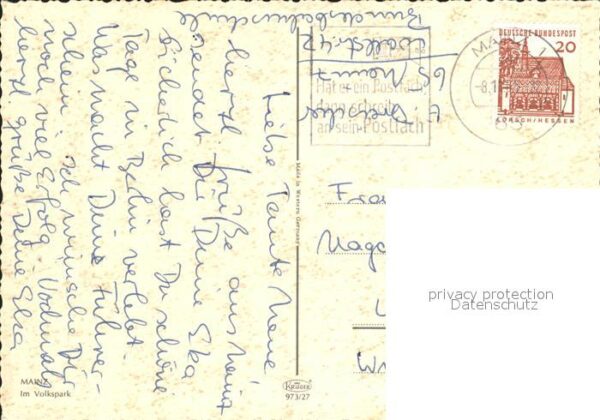 Liebe Tante Nene
herzl. Grüße aus Mainz
sendet Dir Deine Elsa
Sicherlich hast Du schöne
Tage in Berlin verlebt.
Was macht Deine Führer-
schein ich wünsche Dir
noch viel Erfolg. Nochmals
herzl. grüße Deine Elsa
E.
65 Mainz
Bundesbahnschule
MAINZ
Im Volkspark
Made in Western Germany
KRÜGER
973/27
Hat er ein Postfach
dann schreib
an sein Postfach
MAINZ
-8.1
65
DEUTSCHE BUNDESPOST
20
LORSCH/HESSEN
Frau
Magd
privacy protection
Datenschutz